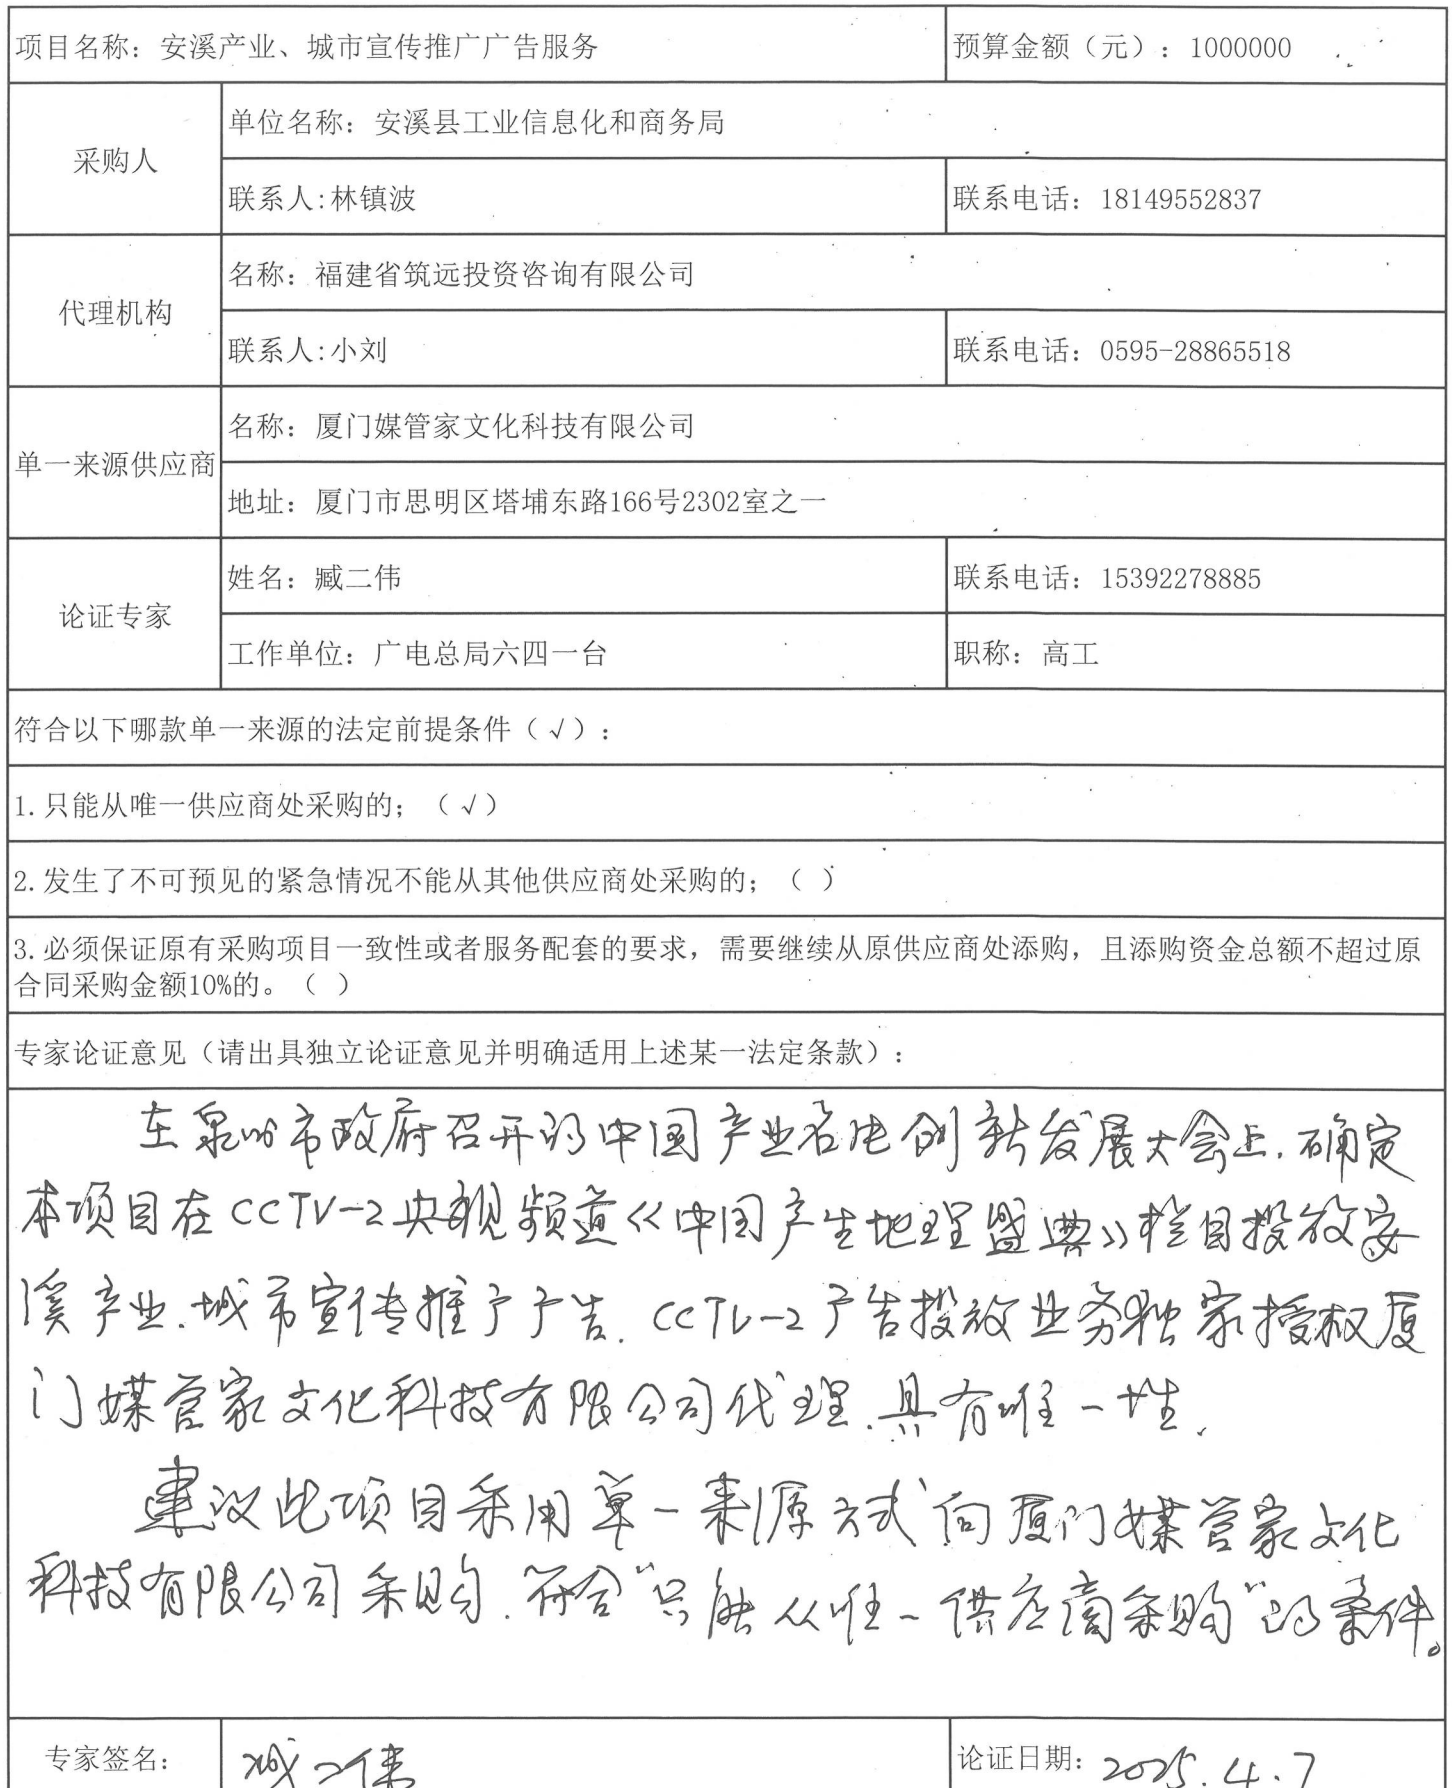 项目名称：安溪产业、城市宣传推广广告服务 预算金额（元）：1000000
采购人
单位名称：安溪县工业信息化和商务局
联系人:林镇波 联系电话：18149552837
代理机构
名称：福建省筑远投资咨询有限公司
联系人:小刘 联系电话：0595-28865518
单一来源供应商
名称：厦门媒管家文化科技有限公司
地址：厦门市思明区塔埔东路166号2302室之一
论证专家
姓名：臧二伟 联系电话：15392278885
工作单位：广电总局六四一台 职称：高工
符合以下哪款单一来源的法定前提条件（√）：
1.只能从唯一供应商处采购的；（√）
2.发生了不可预见的紧急情况不能从其他供应商处采购的；（ ）
3.必须保证原有采购项目一致性或者服务配套的要求，需要继续从原供应商处添购，且添购资金总额不超过原
合同采购金额10%的。（ ）
专家论证意见（请出具独立论证意见并明确适用上述某一法定条款）：
在泉州市政府召开的中国产业名地创新发展大会上，确定
本项目在CCTV-2央视频道《中国产生地理盛典》栏目投放安
溪产业、城市宣传推广广告。CCTV-2广告投放业务独家授权厦
门媒管家文化科技有限公司代理，具有唯一性。
建议此项目采用单一来源方式向厦门媒管家文化
科技有限公司采购，符合“只能从唯一供应商采购”的条件。
专家签名： 臧二伟 论证日期：2025.4.7